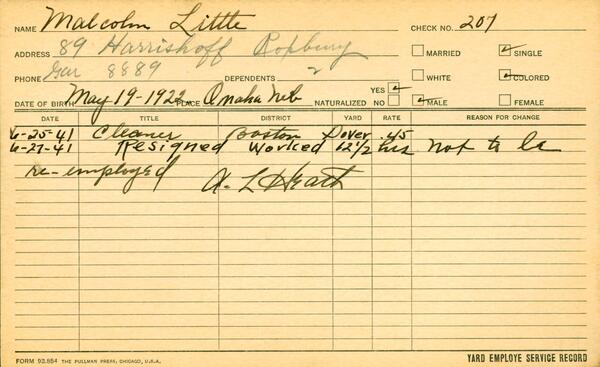 NAME Malcolm Little CHECK NO. 207
ADDRESS 89 Harrishoff Roxbury MARRIED ✓ SINGLE
PHONE Gar 8889 DEPENDENTS 2 WHITE ✓ COLORED
DATE OF BIRTH May 19-1922 PLACE Omaha Neb NATURALIZED YES ✓ NO ✓ MALE FEMALE
DATE TITLE DISTRICT YARD RATE REASON FOR CHANGE
6-25-41 Cleaner Boston Dover .45
6-27-41 Resigned Worked 12 1/2 hrs not to be
re-employed A. L Heath
FORM 93.854 THE PULLMAN PRESS, CHICAGO, U.S.A. YARD EMPLOYE SERVICE RECORD